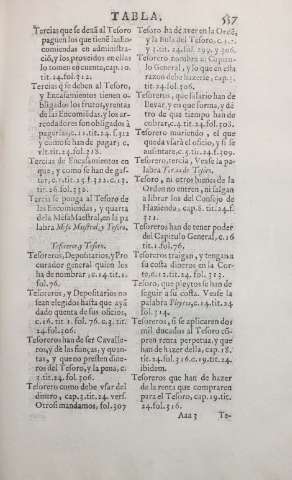 TABLA. 537
Tercias que se deuā al Tesoro
paguen los que tienē las En-
comiendas en administra-
ciō, y los proueidos en ellas
lo tomen en cuenta, cap. 10.
tit. 24. fol. 312.
Tercias q̄ se deben al Tesoro,
y Encasamientos tienen o-
bligados los frutos, y rentas
de las Encomiēdas, y los ar-
rendadores son obligados à
pagarlas, c. 11. tit. 24. f. 312
y como se han de pagar; c.
vlt. tit. 24. fol. 318.
Tercias de Encasamientos en
que, y como se han de gas-
tar, c. 1. tit. 25 f. 322. c. 13.
tit. 26. fol. 332.
Tercia se ponga al Tesoro de
las Encomiendas, y quarta
dela Mesa Maestral, en la pa
labra Mesa Maestral, y Tesoro.
Tesorero, y Tesoro.
Tesoreros, Depositarios, y Pro
curador general quien los
ha de nombrar, c. 14. tit. 1.
fol. 76.
Tesoreros, y Depositarios no
sean elegidos hasta que ayā
dado quenta de sus oficios,
c. 16. tit. 1. fol. 76. c. 3. tit.
24. fol. 306.
Tesoreros han de ser Cavalle-
ros, y de las fianças, y quan-
tas, y a quien presten dine-
ros del Tesoro, y la pena, c.
3. tit. 24. fol. 306.
Tesorero como debe vsar del
dinero, cap. 3. tit. 24. vers.
Otrosi mandamos, fol. 307
Tesoro ha de aver en la Ordē,
y la Bula del Tesoro, c. 1. y
3. tit. 24. fol. 299. y 306.
Tesorero nombra al Capitu-
lo General, y lo que en esta
razon debe hazerse, cap. 3.
tit. 24. fol. 306.
Tesoreros, que salario han de
llevar, y en que forma, y dē
tro de que tiempo han de
cobrar, c. 4. tit. 24. fol. 308.
Tesorero muriendo, el que
queda vsarà el oficio, y si se
ausentare, c. 4. tit. 24. f. 309.
Tesorero, tercia, Vease la pa-
labra Tercia de Tesoro.
Tesoro, ni otros bienes de la
Orden no entren, ni salgan
a librar los del Consejo de
Hazienda, cap. 8. tit. 24. f.
311.
Tesoreros han de tener poder
del Capitulo General, c. 16
tit. 1. fol. 76.
Tesoreros traigan, y tengan a
su costa dineros en la Cor-
te, c. 12. tit. 24. fol. 313.
Tesoro, que pleytos se han de
seguir a su costa. Vease la
palabra Pleyto, c. 14. tit. 24.
fol. 314.
Tesoreros, si se aplicaren dos
mil ducados al Tesoro cō-
pren renta perpetua, y que
han de hazer della, cap. 18.
tit. 24. fol. 316. c. 19. tit. 24.
ibidem.
Tesoreros que han de hazer
de la renta que compraren
para el Tesoro, cap. 19. tit.
24. fol. 316.
Aaa 3 Te-